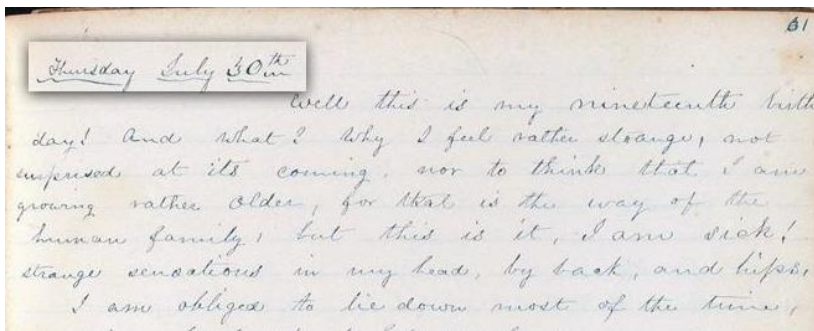 61
Thursday July 30th
Well this is my nineteenth birth
day! And what? Why I feel rather strange, not
surprised at its coming, nor to think that I am
growing rather older, for that is the way of the
human family, but this is it, I am sick!
strange sensations in my head, by back, and hips,
I am obliged to lie down most of the time,